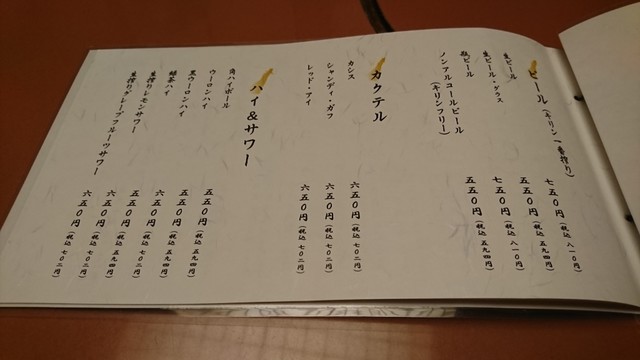 ビール (キリン一番搾り)
生ビール 七五〇円 (税込 八一〇円)
生ビール・グラス 五五〇円 (税込 五九四円)
瓶ビール 七五〇円 (税込 八一〇円)
ノンアルコールビール (キリンフリー) 五五〇円 (税込 五九四円)
カクテル
カシス 六五〇円 (税込 七〇二円)
シャンディ・ガフ 六五〇円 (税込 七〇二円)
レッド・アイ 六五〇円 (税込 七〇二円)
ハイ&サワー
角ハイボール 五五〇円 (税込 五九四円)
ウーロンハイ 五五〇円 (税込 五九四円)
黒ウーロンハイ 六五〇円 (税込 七〇二円)
緑茶ハイ 五五〇円 (税込 五九四円)
生搾りレモンサワー 六五〇円 (税込 七〇二円)
生搾りグレープフルーツサワー 六五〇円 (税込 七〇二円)